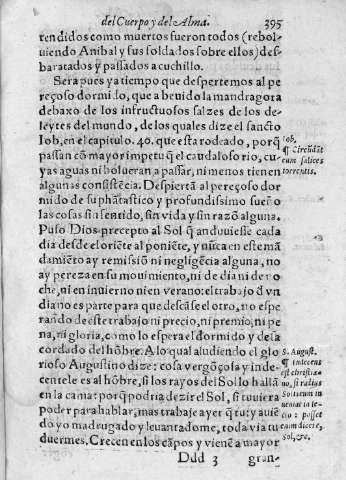 del Cuerpo y del Alma. 395
tendidos como muertos fueron todos (rebol
uiendo Anibal y sus soldados sobre ellos) des-
baratados y passados a cuchillo.
Sera pues ya tiempo que despertemos al pe
reçoso dormido, que a beuido la mandragora
debaxo de los infructuosos salzes de los de-
leytes del mundo, de los quales dize el sancto
Iob, en el capitu. 40. que esta rodeado, porq̃
passan cõ mayor impetu q̃ el caudaloso rio, cu-
yas aguas ni bolueran a passar, ni menos tienen
algunas consistẽcia. Despiertã al pereçoso dor
mido de su phãtastico y profundissimo sueño
las cosas sin sentido, sin vida y sin razõ alguna.
Puso Dios precepto al Sol q̃ anduuiesse cada
dia desde el oriẽte al poniẽte, y nũca en este mã
damiẽto ay remissiõ ni negligẽcia alguna, no
ay pereza en su mouimiento, ni de dia ni de no
che, ni en inuierno ni en verano: el trabajo d̃ vn
dia no es parte para que descãse el otro, no espe
rando de este trabajo ni precio, ni premio, ni pe
na, ni gloria, como lo espera el dormido y desa
cordado del hõbre. A lo qual aludiendo el glo
rioso Augustino dize: cosa vergõçosa y inde-
cente le es al hõbre, si los rayos del Sol lo hallã
en la cama: porq̃ podria dezir el Sol, si tuuiera
poder para hablar, mas trabaje ayer q̃ tu: y auiẽ
do yo madrugado y leuantadome, toda via tu
duermes. Crecen en los cãpos y vienẽ a mayor
Ddd 3 gran-
Iob,
¶ Circũdãt
eum salices
torrentis.
S. August.
¶ indecens
est christia-
no, si radius
Solis eum in
ueniat in le-
cto: posset
enim dicere,
Sol, &c.